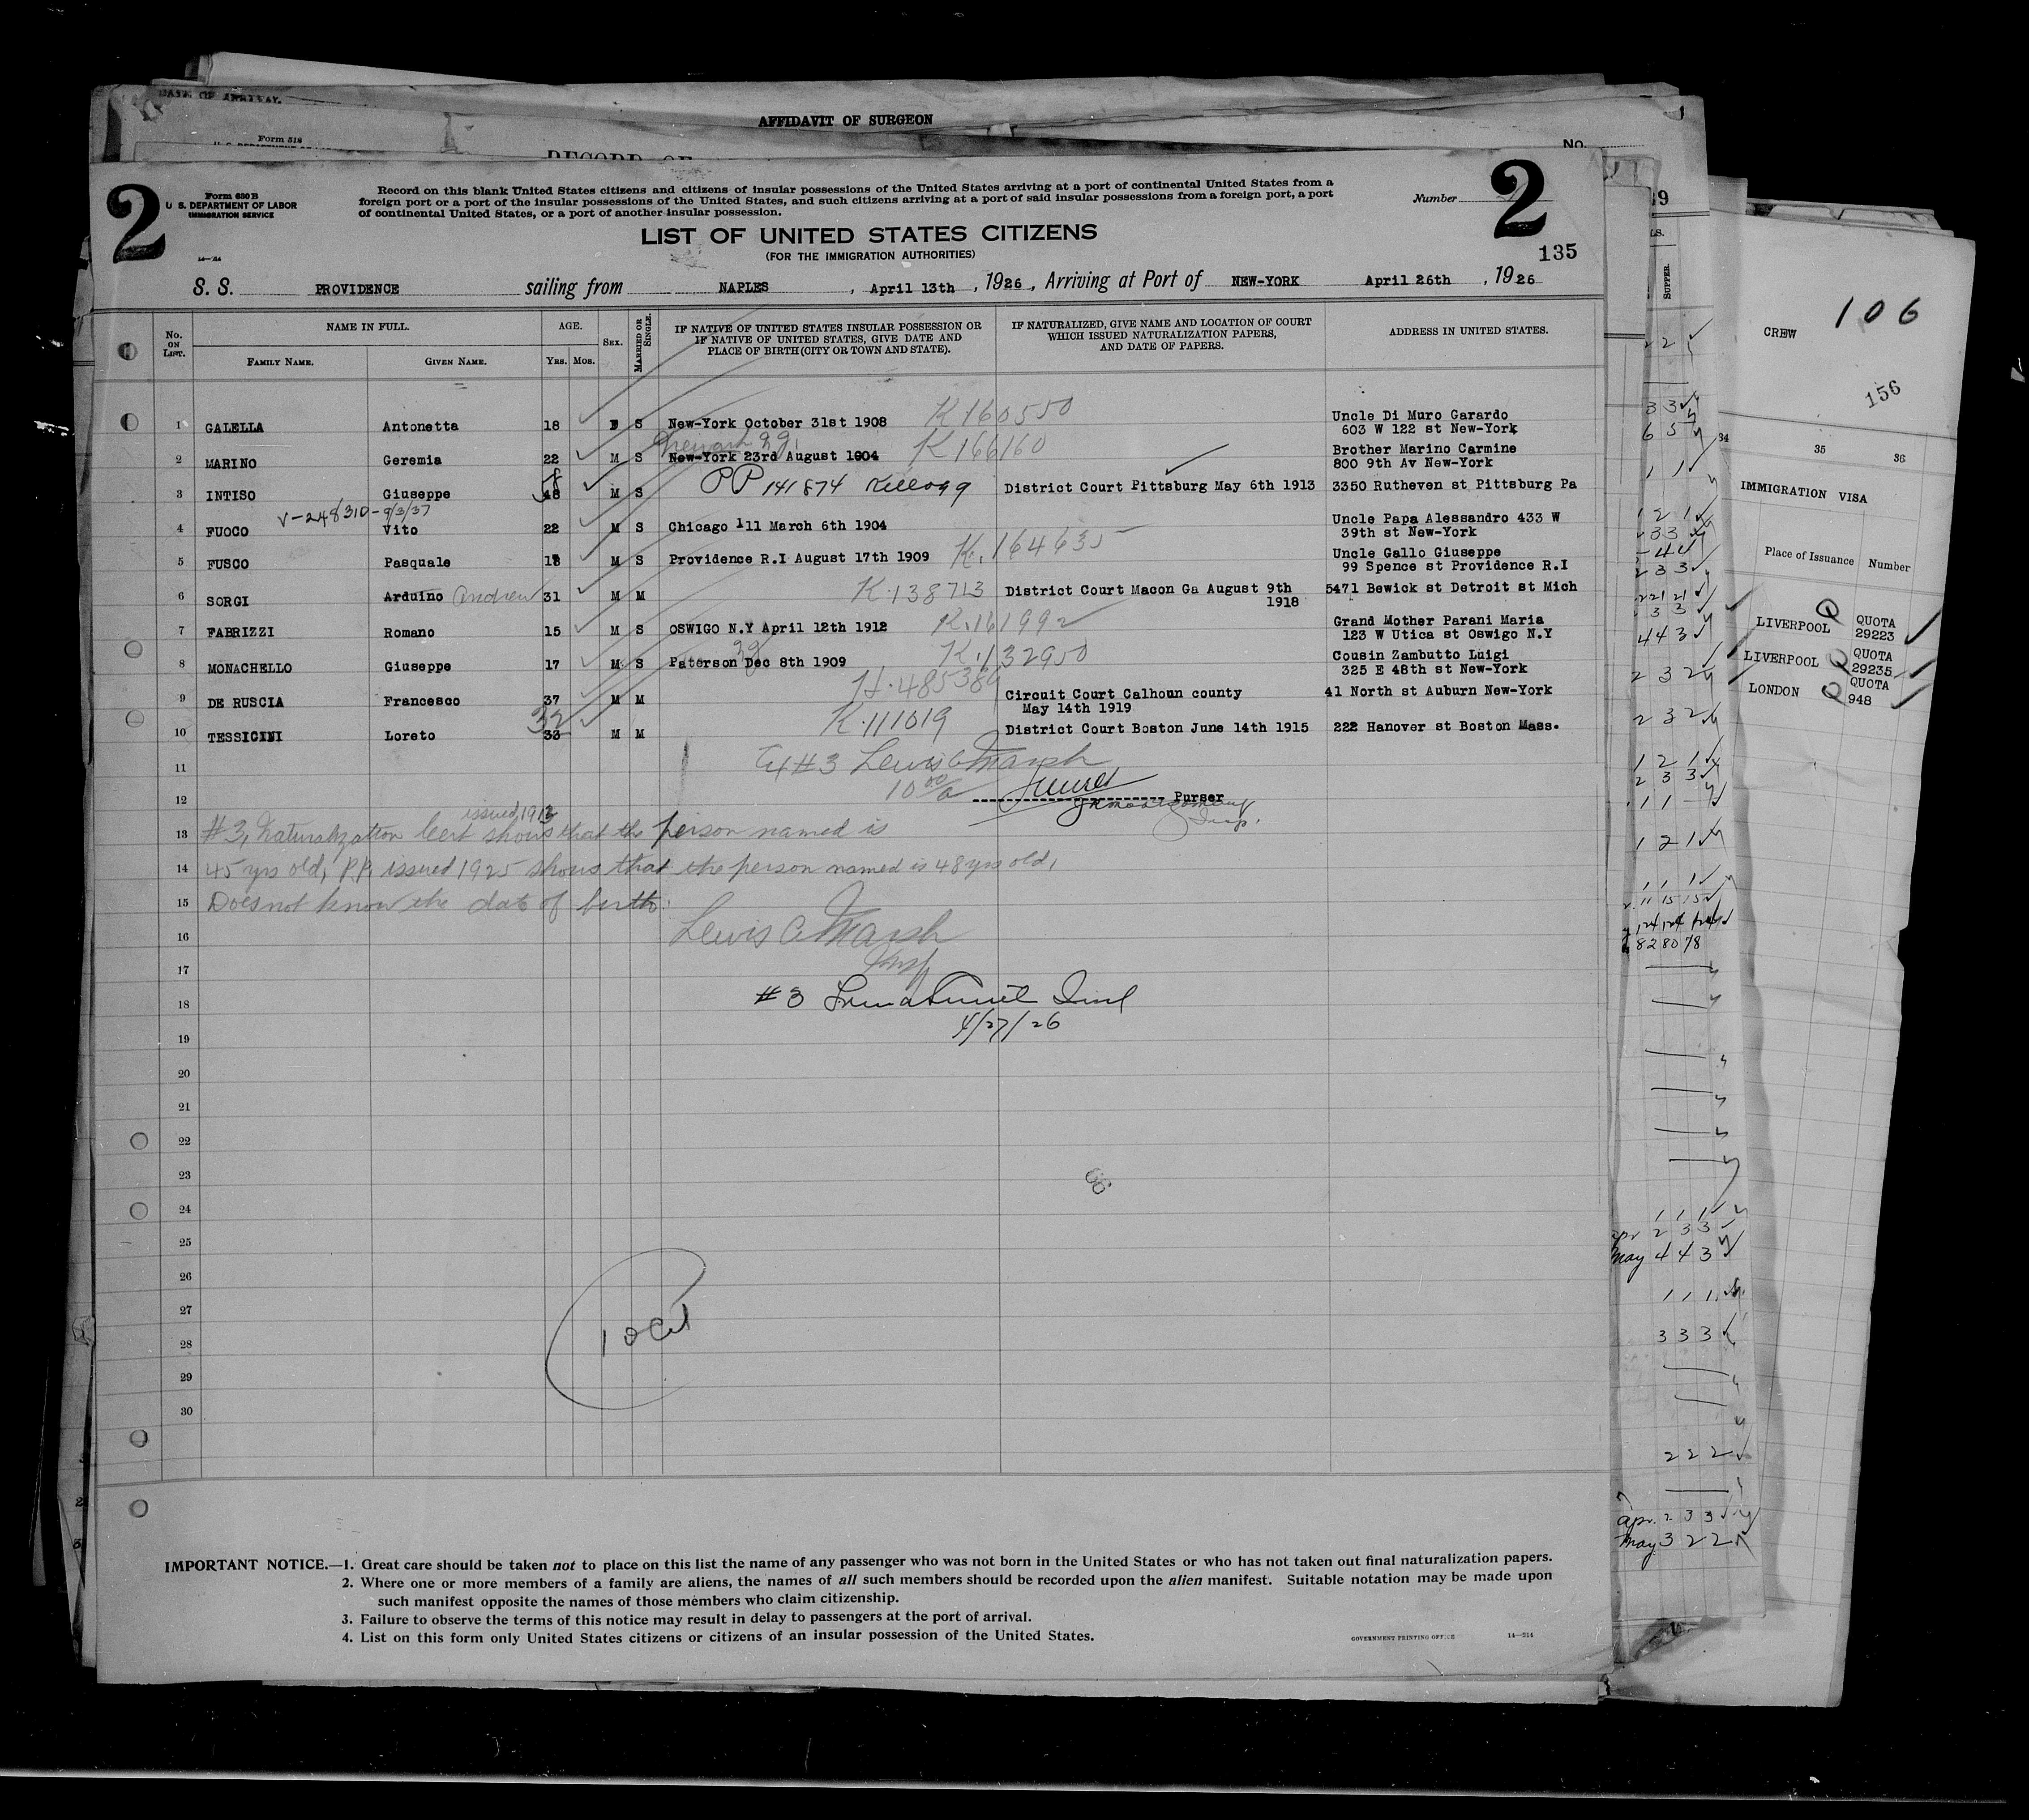 DATE OF ARRIVAL.
AFFIDAVIT OF SURGEON
Form 518
RECORD OF
No.
2
Form 630 B
U. S. DEPARTMENT OF LABOR
IMMIGRATION SERVICE
Record on this blank United States citizens and citizens of insular possessions of the United States arriving at a port of continental United States from a
foreign port or a port of the insular possessions of the United States, and such citizens arriving at a port of said insular possessions from a foreign port, a port
of continental United States, or a port of another insular possession.
Number
2
135
LIST OF UNITED STATES CITIZENS
(FOR THE IMMIGRATION AUTHORITIES)
S. S. PROVIDENCE sailing from NAPLES, April 13th, 1926, Arriving at Port of NEW-YORK April 26th, 1926
No. ON LIST. NAME IN FULL. AGE. SEX. MARRIED OR SINGLE. IF NATIVE OF UNITED STATES INSULAR POSSESSION OR IF NATIVE OF UNITED STATES, GIVE DATE AND PLACE OF BIRTH (CITY OR TOWN AND STATE). IF NATURALIZED, GIVE NAME AND LOCATION OF COURT WHICH ISSUED NATURALIZATION PAPERS, AND DATE OF PAPERS. ADDRESS IN UNITED STATES.
FAMILY NAME. GIVEN NAME. YRS. MOS.
1 GALELLA Antonetta 18 F S New-York October 31st 1908 K160550 Uncle Di Muro Garardo
603 W 122 st New-York
2 MARINO Geremia 22 M S New-York 23rd August 1904 K166160 Brother Marino Carmine
800 9th Av New-York
3 INTISO Giuseppe 48 M S PP 141874 Kellogg District Court Pittsburg May 6th 1913 3350 Rutheven st Pittsburg Pa
V-248310-9/3/37
4 FUOCO Vito 22 M S Chicago 111 March 6th 1904 Uncle Papa Alessandro 433 W
39th st New-York
5 FUSCO Pasquale 18 M S Providence R.I August 17th 1909 K.164635 Uncle Gallo Giuseppe
99 Spence st Providence R.I
6 SORGI Arduino Andrew 31 M M K.138713 District Court Macon Ga August 9th
1918 5471 Bewick st Detroit st Mich
7 FABRIZZI Romano 15 M S OSWIGO N.Y April 12th 1912 K.161992 Grand Mother Parani Maria
123 W Utica st Oswigo N.Y
8 MONACHELLO Giuseppe 17 M S Paterson Dec 8th 1909 K.132950 Cousin Zambutto Luigi
325 E 48th st New-York
9 DE RUSCIA Francesco 37 M M H.485389 Circuit Court Calhoun county
May 14th 1919 41 North st Auburn New-York
10 TESSICINI Loreto 33 32 M M K.111019 District Court Boston June 14th 1915 222 Hanover st Boston Mass.
11
#3 Lewis C Marsh
12
Purser
issued 1913
13 #3, Naturalization Cert shows that the person named is
14 45 yrs old, P.P. issued 1925 shows that the person named is 48 yrs old,
15 Does not know the date of birth.
16 Lewis C Marsh
Insp
17
18 #3
4/27/26
19
20
21
22
23
24
25
26
27
28
29
30
IMPORTANT NOTICE.—1. Great care should be taken not to place on this list the name of any passenger who was not born in the United States or who has not taken out final naturalization papers.
2. Where one or more members of a family are aliens, the names of all such members should be recorded upon the alien manifest. Suitable notation may be made upon
such manifest opposite the names of those members who claim citizenship.
3. Failure to observe the terms of this notice may result in delay to passengers at the port of arrival.
4. List on this form only United States citizens or citizens of an insular possession of the United States.
GOVERNMENT PRINTING OFFICE 14—514
SUPPER.
CREW 106
156
34 35 36
IMMIGRATION VISA
Place of Issuance Number
LIVERPOOL Q QUOTA
29223
LIVERPOOL Q QUOTA
29235
LONDON Q QUOTA
948